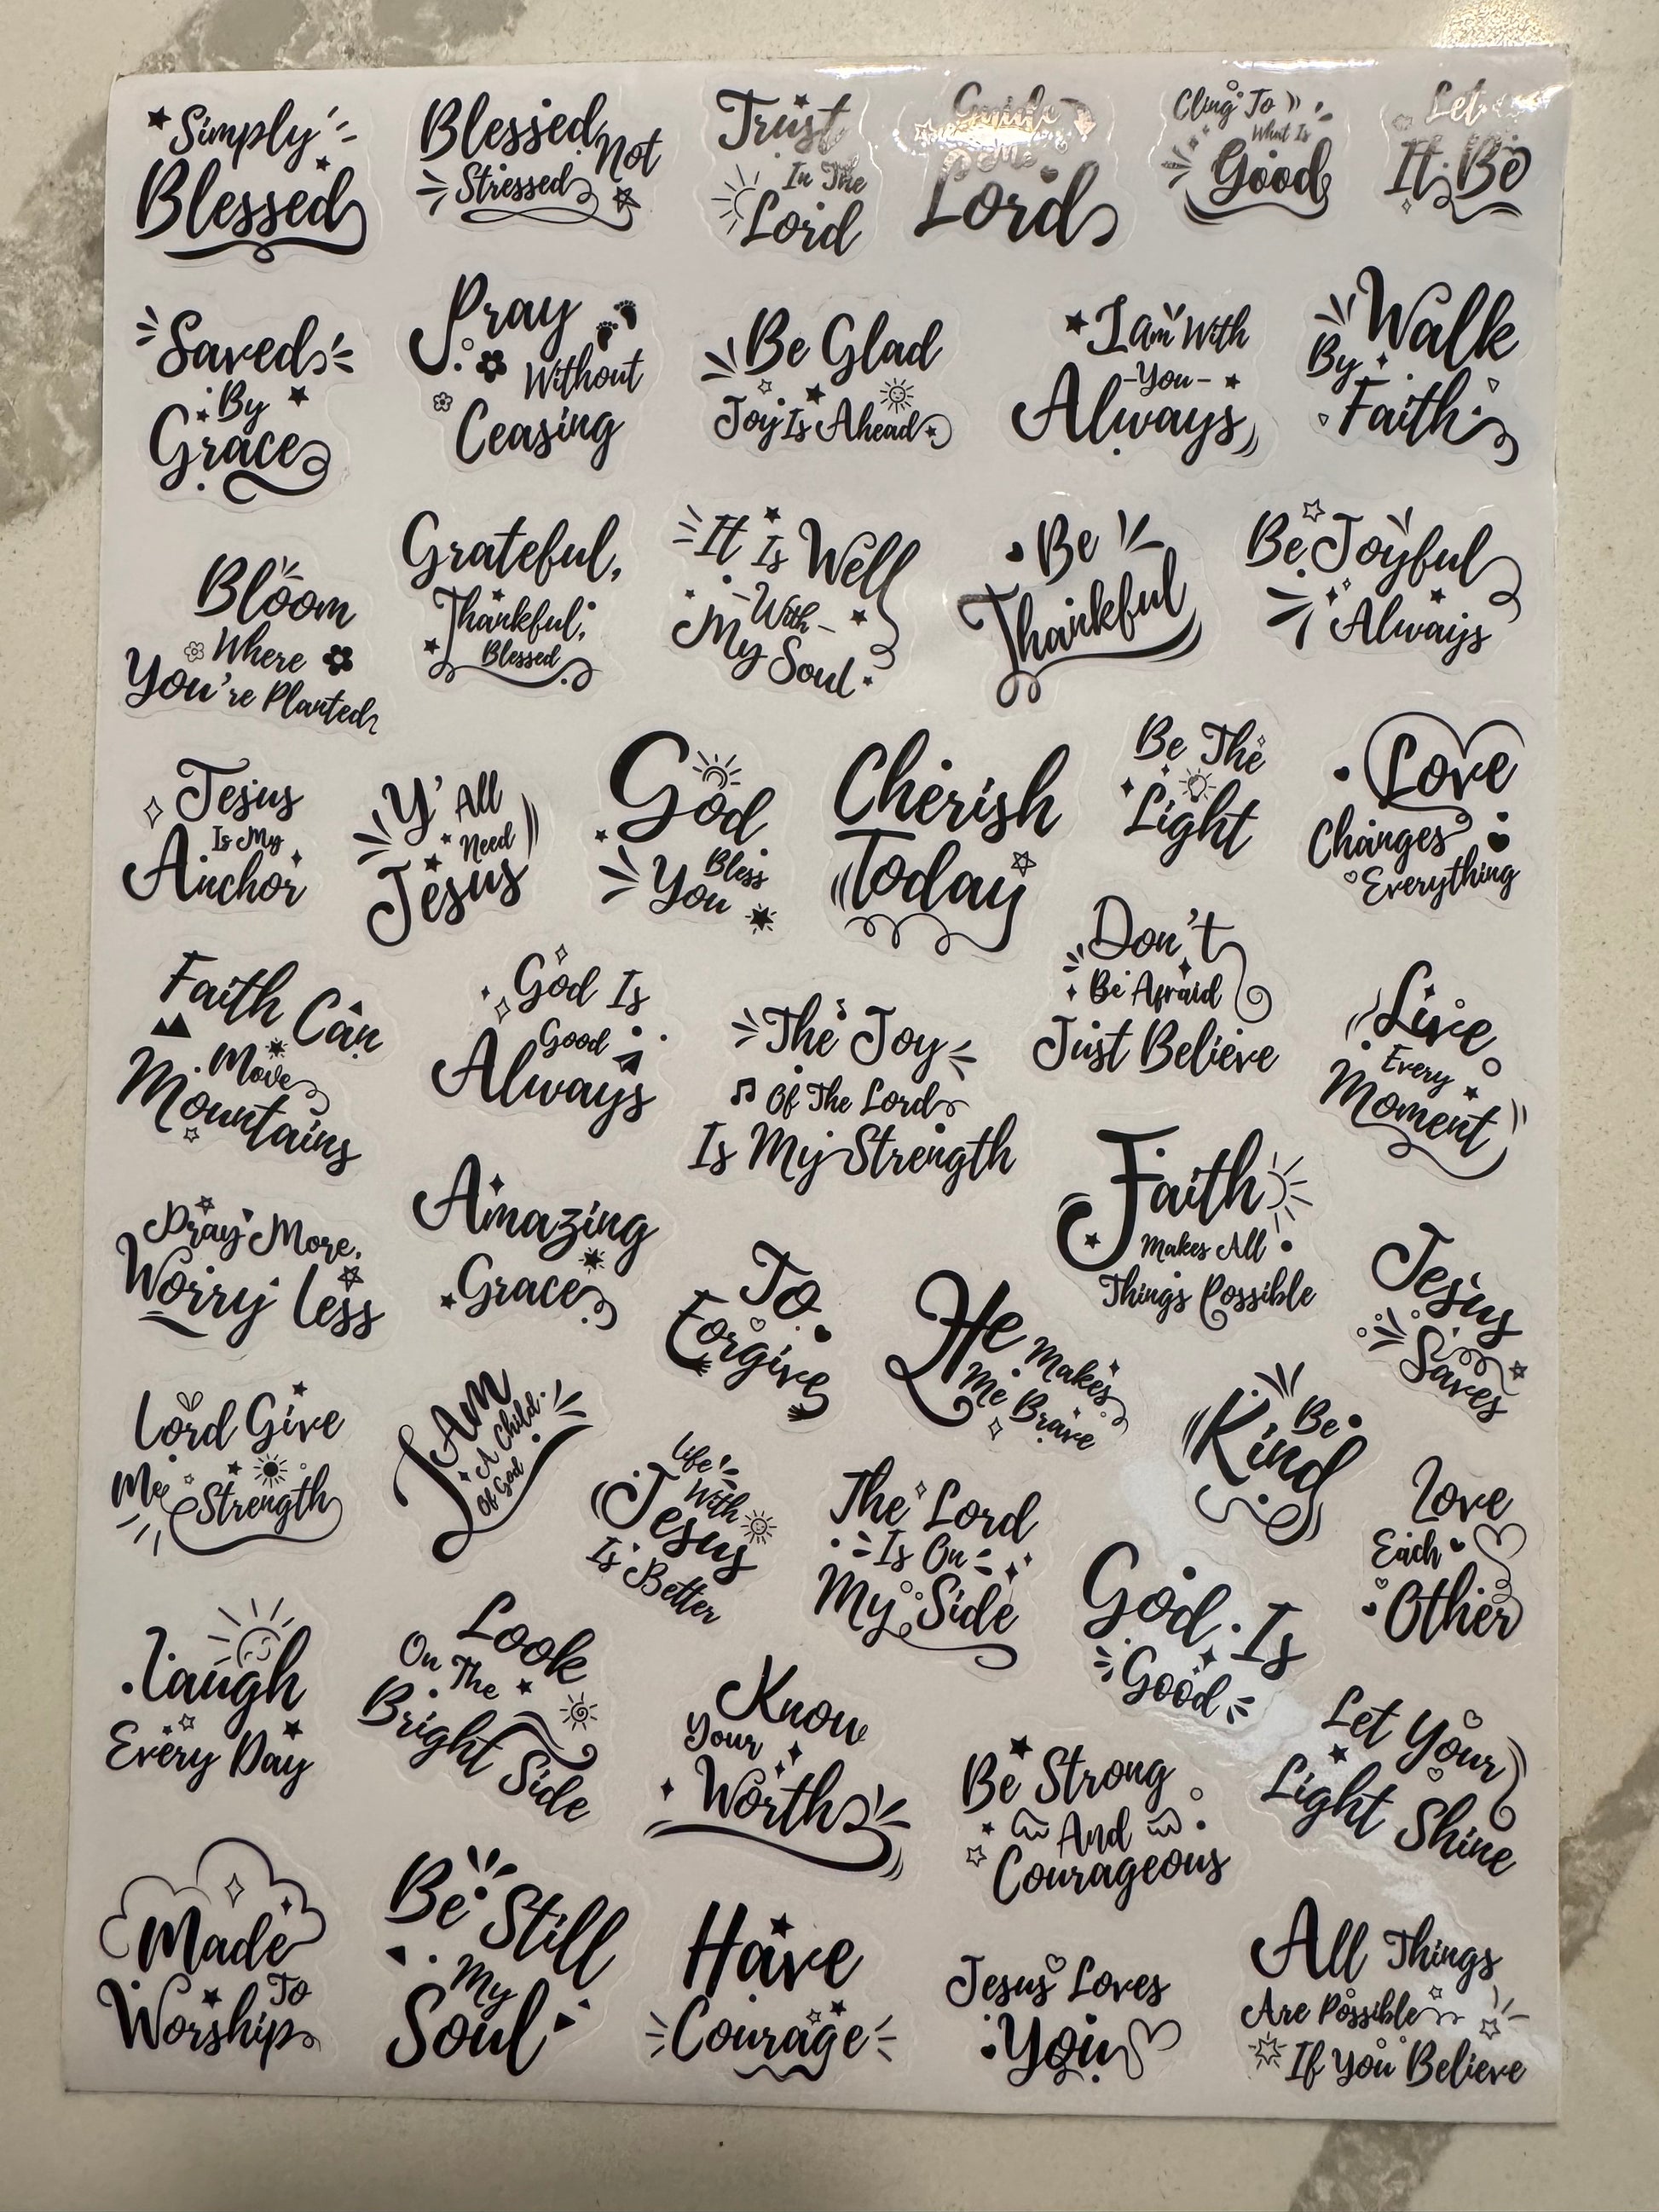 Simply
Blessed
Blessed Not
Stressed
Trust
In The
Lord
Guide
Me
Lord
Cling To
What Is
Good
Let
It Be
Saved
By
Grace
Pray
Without
Ceasing
Be Glad
Joy Is Ahead
I am With
-You-
Always
Walk
By
Faith
Bloom
Where
You're Planted
Grateful,
Thankful,
Blessed
It Is Well
-With-
My Soul
Be
Thankful
Be Joyful
Always
Jesus
Is My
Anchor
Y'All
Need
Jesus
God
Bless
You
Cherish
Today
Be The
Light
Love
Changes
Everything
Faith Can
Move
Mountains
God Is
Good
Always
The Joy
Of The Lord
Is My Strength
Don't
Be Afraid
Just Believe
Live
Every
Moment
Pray More,
Worry Less
Amazing
Grace
To
Forgive
He Makes
Me Brave
Faith
Makes All
Things Possible
Jesus
Saves
Lord Give
Me Strength
I Am
A Child
Of God
Life
With
Jesus
Is Better
The Lord
Is On
My Side
Be
Kind
Love
Each
Other
Laugh
Every Day
Look
On The
Bright Side
Know
Your
Worth
God Is
Good
Be Strong
And
Courageous
Let Your
Light Shine
Made
To
Worship
Be Still
My
Soul
Have
Courage
Jesus Loves
You
All Things
Are Possible
If You Believe